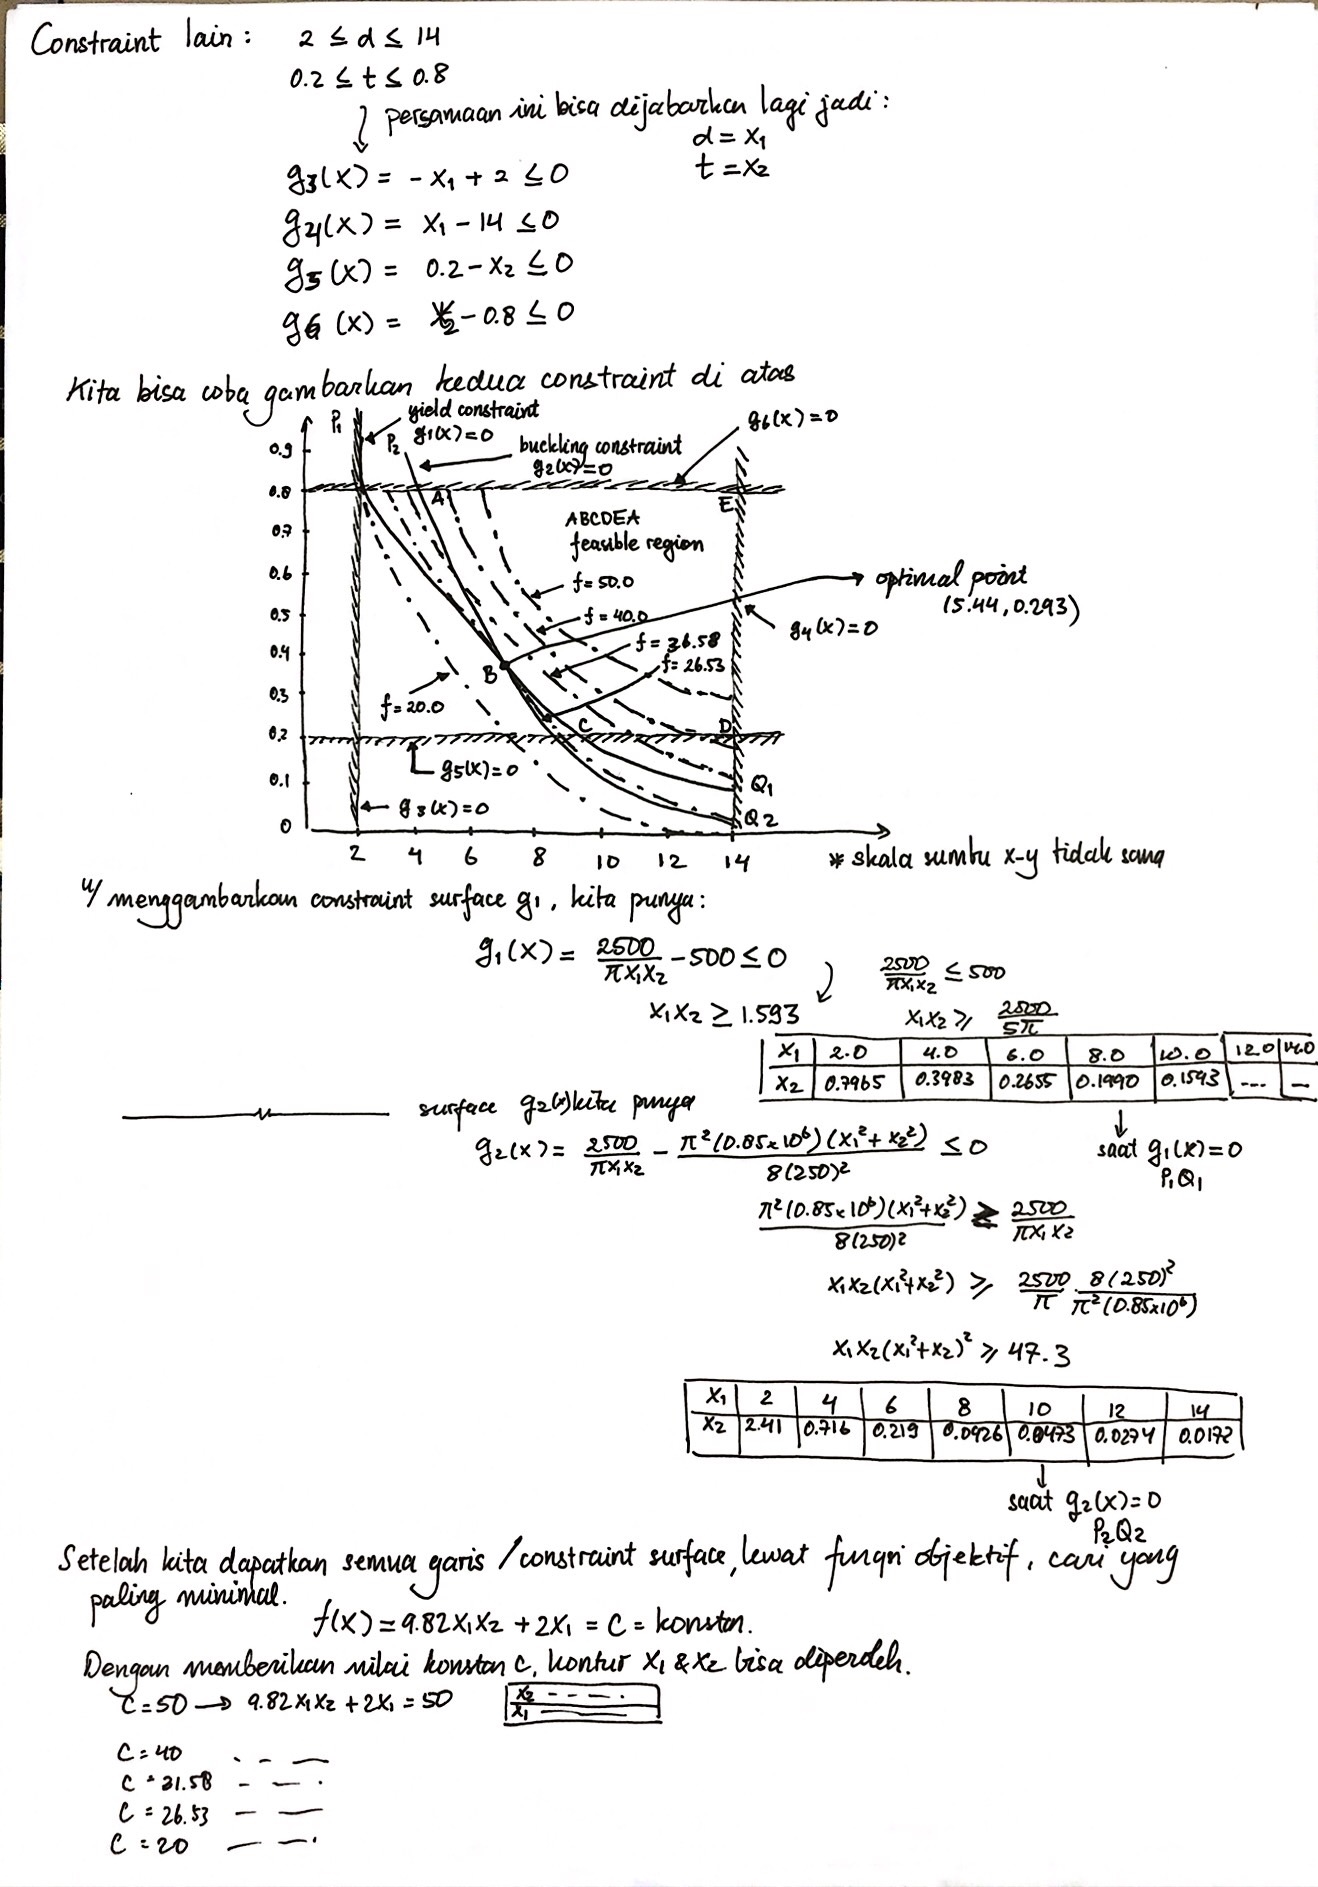 Constraint lain : 2 ≤ d ≤ 14
0.2 ≤ t ≤ 0.8
persamaan ini bisa dijabarkan lagi jadi :
d = x₁
t = x₂
g₃(x) = - x₁ + 2 ≤ 0
g₄(x) = x₁ - 14 ≤ 0
g₅(x) = 0.2 - x₂ ≤ 0
g₆(x) = x₂ - 0.8 ≤ 0
Kita bisa coba gambarkan kedua constraint di atas
P₁ yield constraint
g₁(x)=0
P₂ buckling constraint
g₂(x)=0
g₆(x)=0
0.9
0.8 A E
0.7 ABCDEA
feasible region
0.6 f=50.0 optimal point
(5.44, 0.293)
0.5 f=40.0 g₄(x)=0
0.4 f=36.58
B f=26.53
0.3 f=20.0
0.2 C D
g₅(x)=0
0.1 Q1
g₃(x)=0
0 Q2
2 4 6 8 10 12 14 * skala sumbu x-y tidak sama
u/ menggambarkan constraint surface g₁, kita punya :
g₁(x) = 2500/πx₁x₂ - 500 ≤ 0
2500/πx₁x₂ ≤ 500
x₁x₂ ≥ 1.593 x₁x₂ ≥ 2500/5π
x₁ 2.0 4.0 6.0 8.0 10.0 12.0 14.0
x₂ 0.7965 0.3983 0.2655 0.1990 0.1593 --- –
surface g₂(x) kita punya
saat g₁(x)=0
P₁Q₁
g₂(x) = 2500/πx₁x₂ - π²(0.85x10⁶)(x₁²+x₂²)/8(250)² ≤ 0
π²(0.85x10⁶)(x₁²+x₂²)/8(250)² ≥ 2500/πx₁x₂
x₁x₂(x₁²+x₂²) ≥ 2500/π · 8(250)²/π²(0.85x10⁶)
x₁x₂(x₁²+x₂)² ≥ 47.3
x₁ 2 4 6 8 10 12 14
x₂ 2.41 0.716 0.219 0.0926 0.0473 0.0274 0.0172
saat g₂(x)=0
P₂Q2
Setelah kita dapatkan semua garis / constraint surface, lewat fungsi objektif, cari yang
paling minimal.
f(x) = 9.82x₁x₂ + 2x₁ = C = konstan.
Dengan memberikan nilai konstan c, kontur x₁ & x₂ bisa diperoleh.
C=50 → 9.82x₁x₂ + 2x₁ = 50
x₂ - - - .
x₁
C = 40
C = 31.58
C = 26.53
C = 20